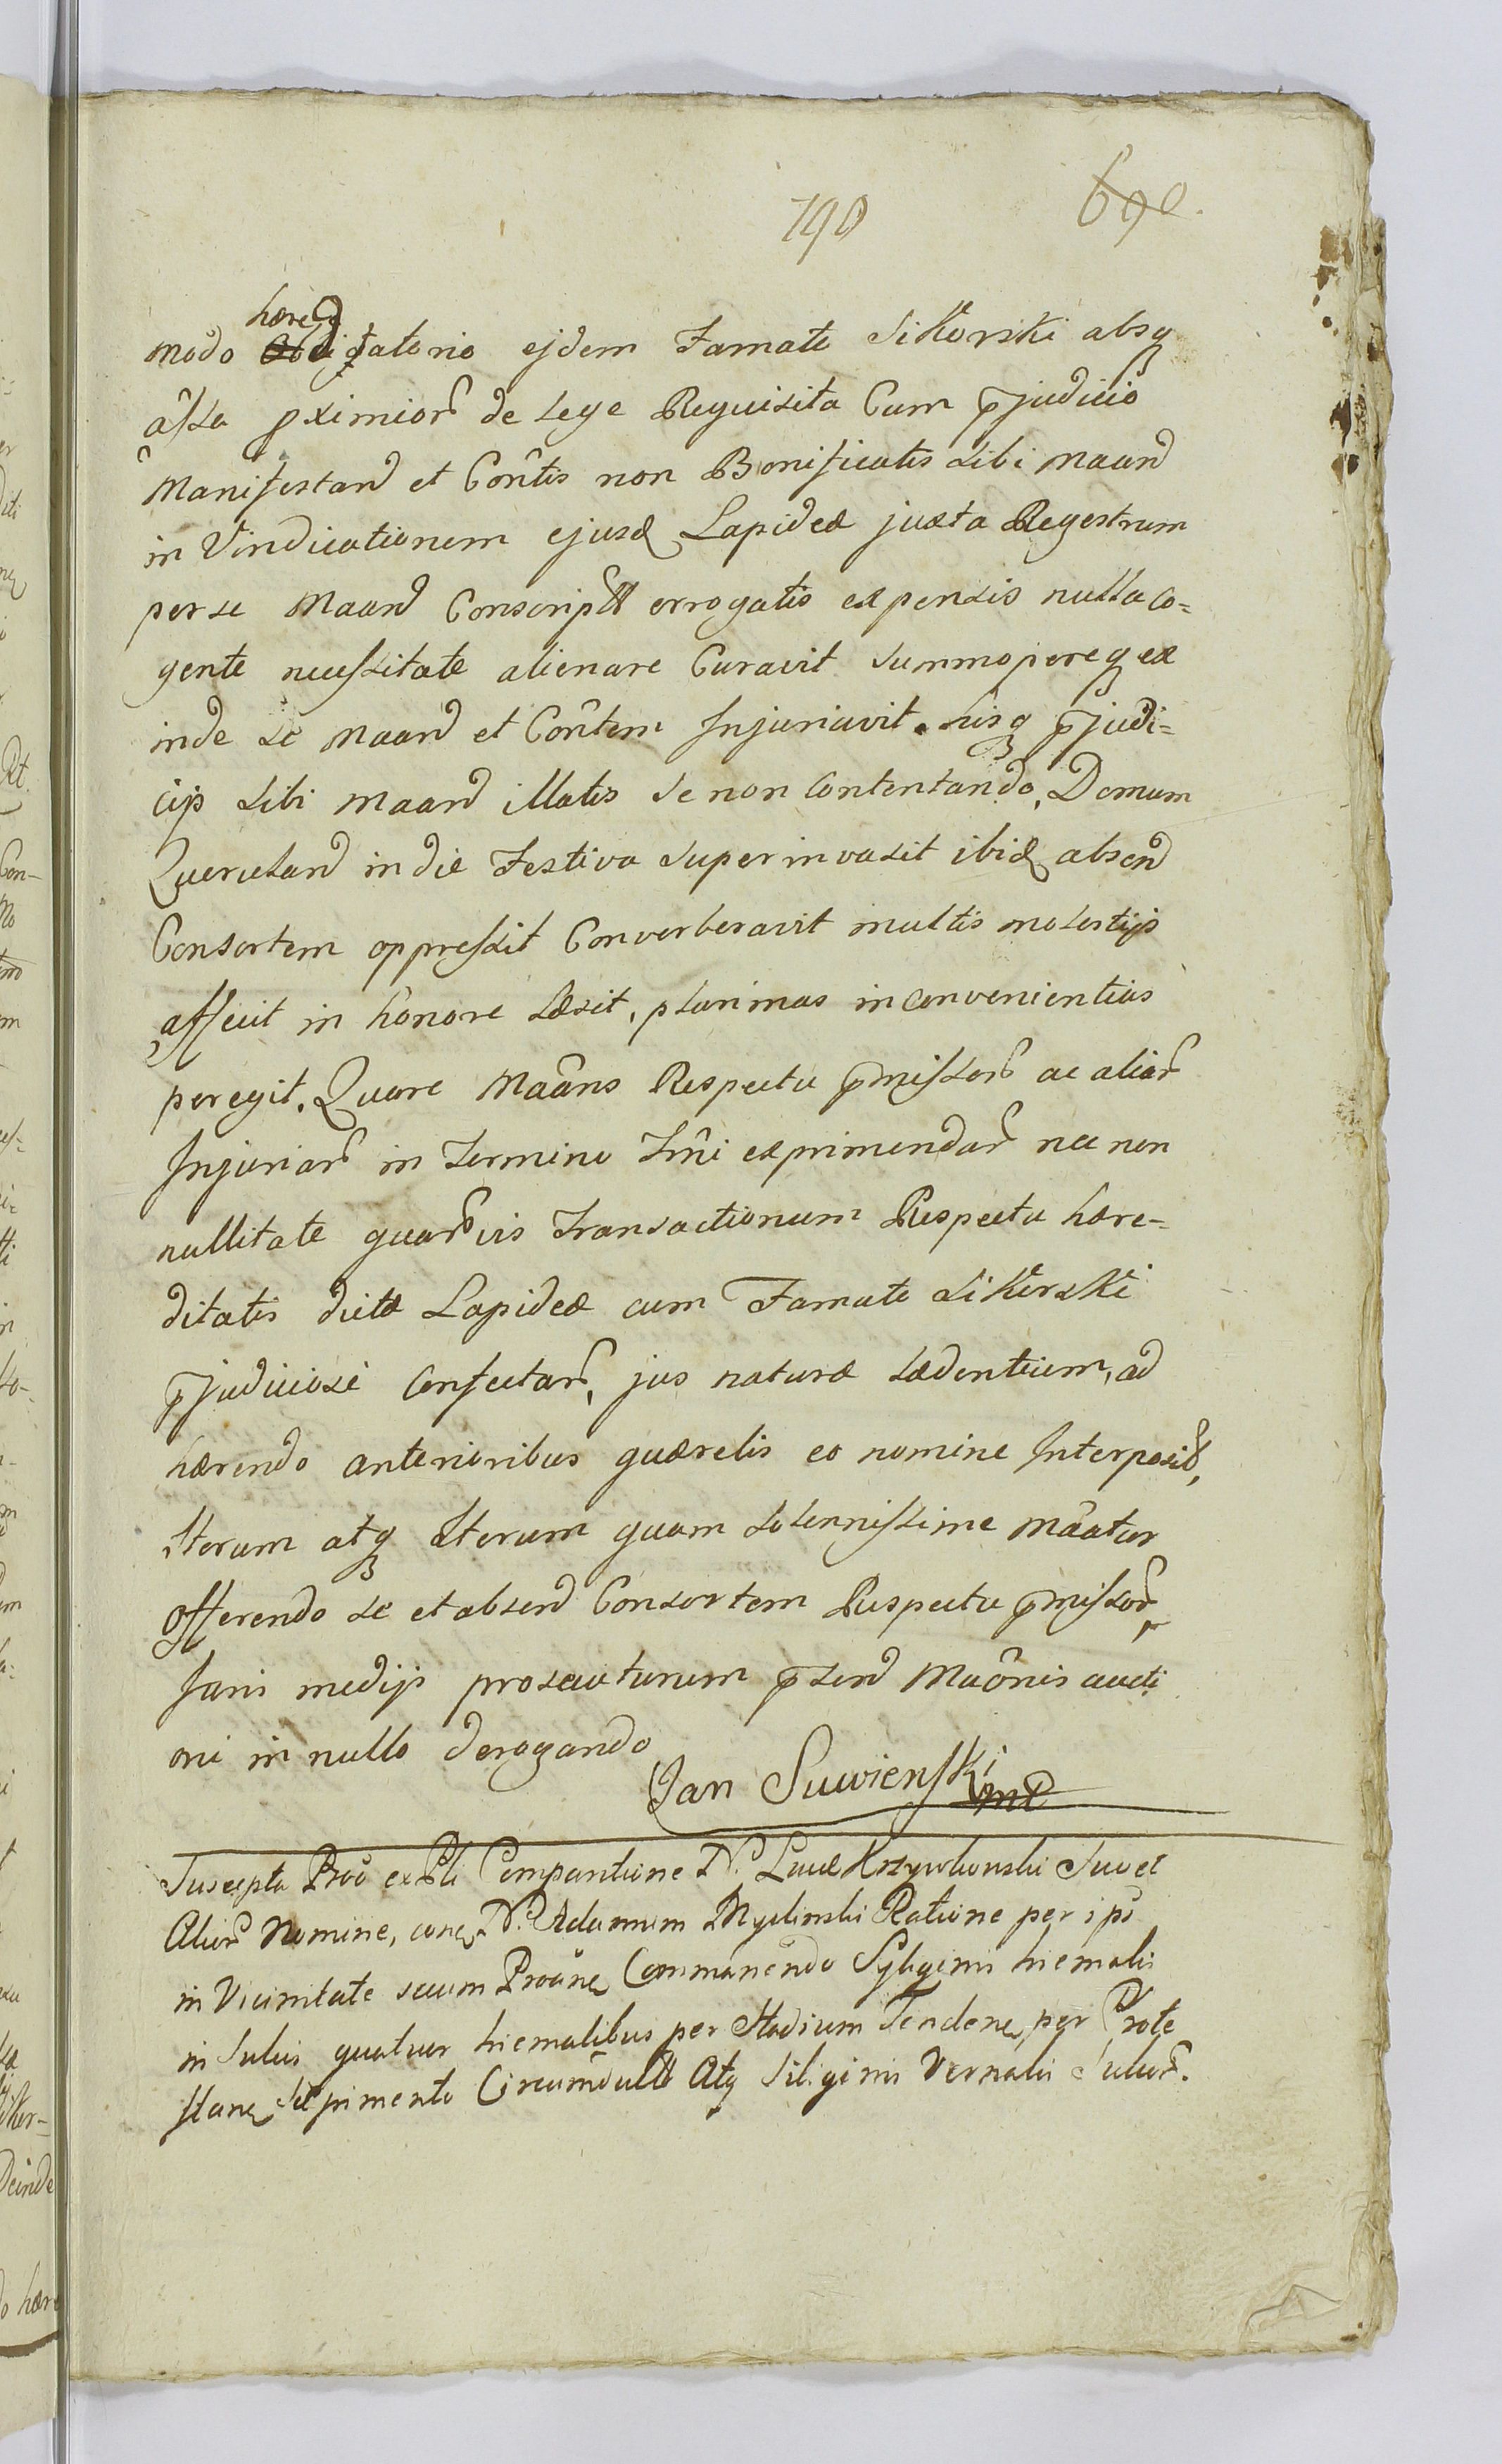 190 690.
hered
modo Obligatorio ejdem Famato Sikorski absq
assa pximior de lege Requisita Cum pjudicio
Manifestand et Contis non Bonificatis sibi Maand
in Vindicationem ejusd Lapideæ juxta Regestrum
per se Maand Conscriptt errogatis expensis nulla co=
gente necessitate alienare Curavit Summopereq ex
inde se Maand et Contem Injuriavit. hisq pjudi=
cijs sibi Maand illatis se non contentando, Domum
Queruland in die Festiva superinvasit ibid absend
Consortem oppressit Converberavit multis molestijs
affecit in honore læsit, plurimas inconvenientias
peregit. Quare Maans Respectu pmissor ac aliar
Injuriar in Termino Tmi exprimendar nec non
nullitate quarvis Transactionum Respectu hære-
ditatis dictæ Lapideæ cum Famato Sikorski
pjudiciosè confectar, jus naturæ lædentium, ad
hærendo anterioribus quærelis eo nomine Interposit,
Iterum atq Iterum quam solennissime Maatur
Offerendo se et absend Consortem Respectu pmissor
Juris medijs prosecuturum psend Maonis aucti
oni in nullo derogando
Jan Suwienski mp
Suscepta Prоо ex Pti Comparitione N. Lucæ Krzywkowski Suo et
Alior Nomine, cone N. Adamum Myclinski Ratione per ips
in Vicinitate secum Proane Commanendo Syligini hiemalis
in Sulcis quatuor hiemalibus per Stadium Tendene, per Prote
stane Sepimento Circumductt Atq Siliginis Vernalis Sulcor.